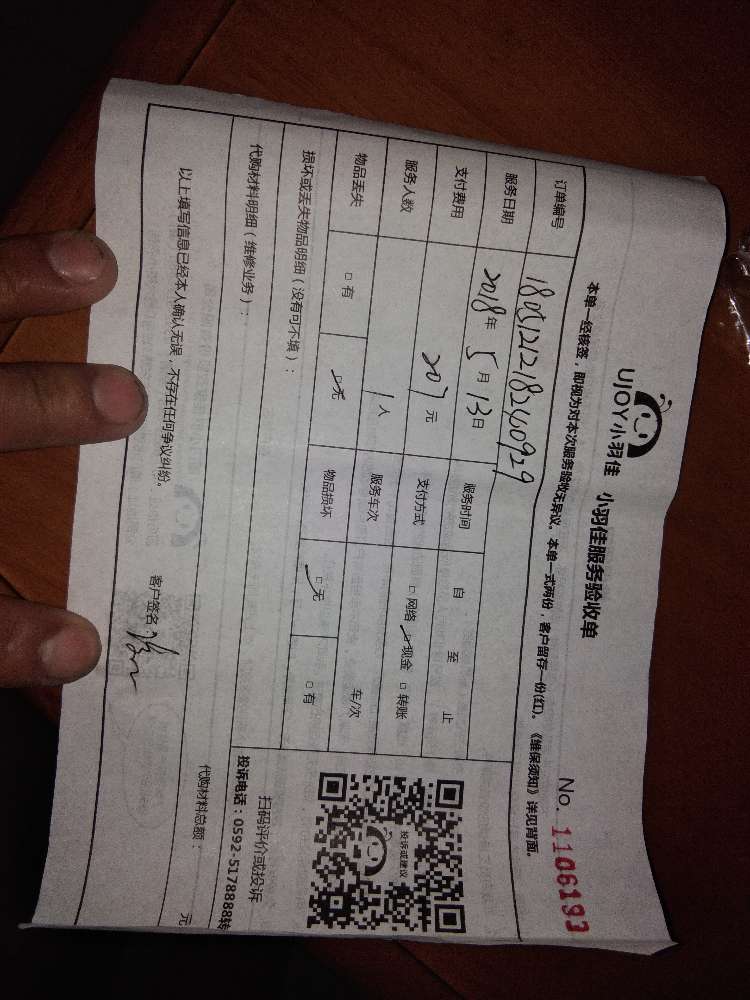 UJOY小羽佳 小羽佳服务验收单 No. 1106193
本单一经核签，即视为对本次服务验收无异议。本单一式两份，客户留存一份(红)。《维保须知》详见背面。
订单编号 18051212182460929
服务日期 2018年5月13日 服务时间 自 至 止
支付费用 207元 支付方式 □网络 ☑现金 □转账
服务人数 1人 服务车次 车/次
物品丢失 □有 ☑无 物品损坏 ☑无 □有
损坏或丢失物品明细（没有可不填）：
投诉或建议
扫码评价或投诉
投诉电话：0592-5178888转
代购材料明细（维修业务）：
代购材料总额： 元
以上填写信息已经本人确认无误，不存在任何争议纠纷。
客户签名